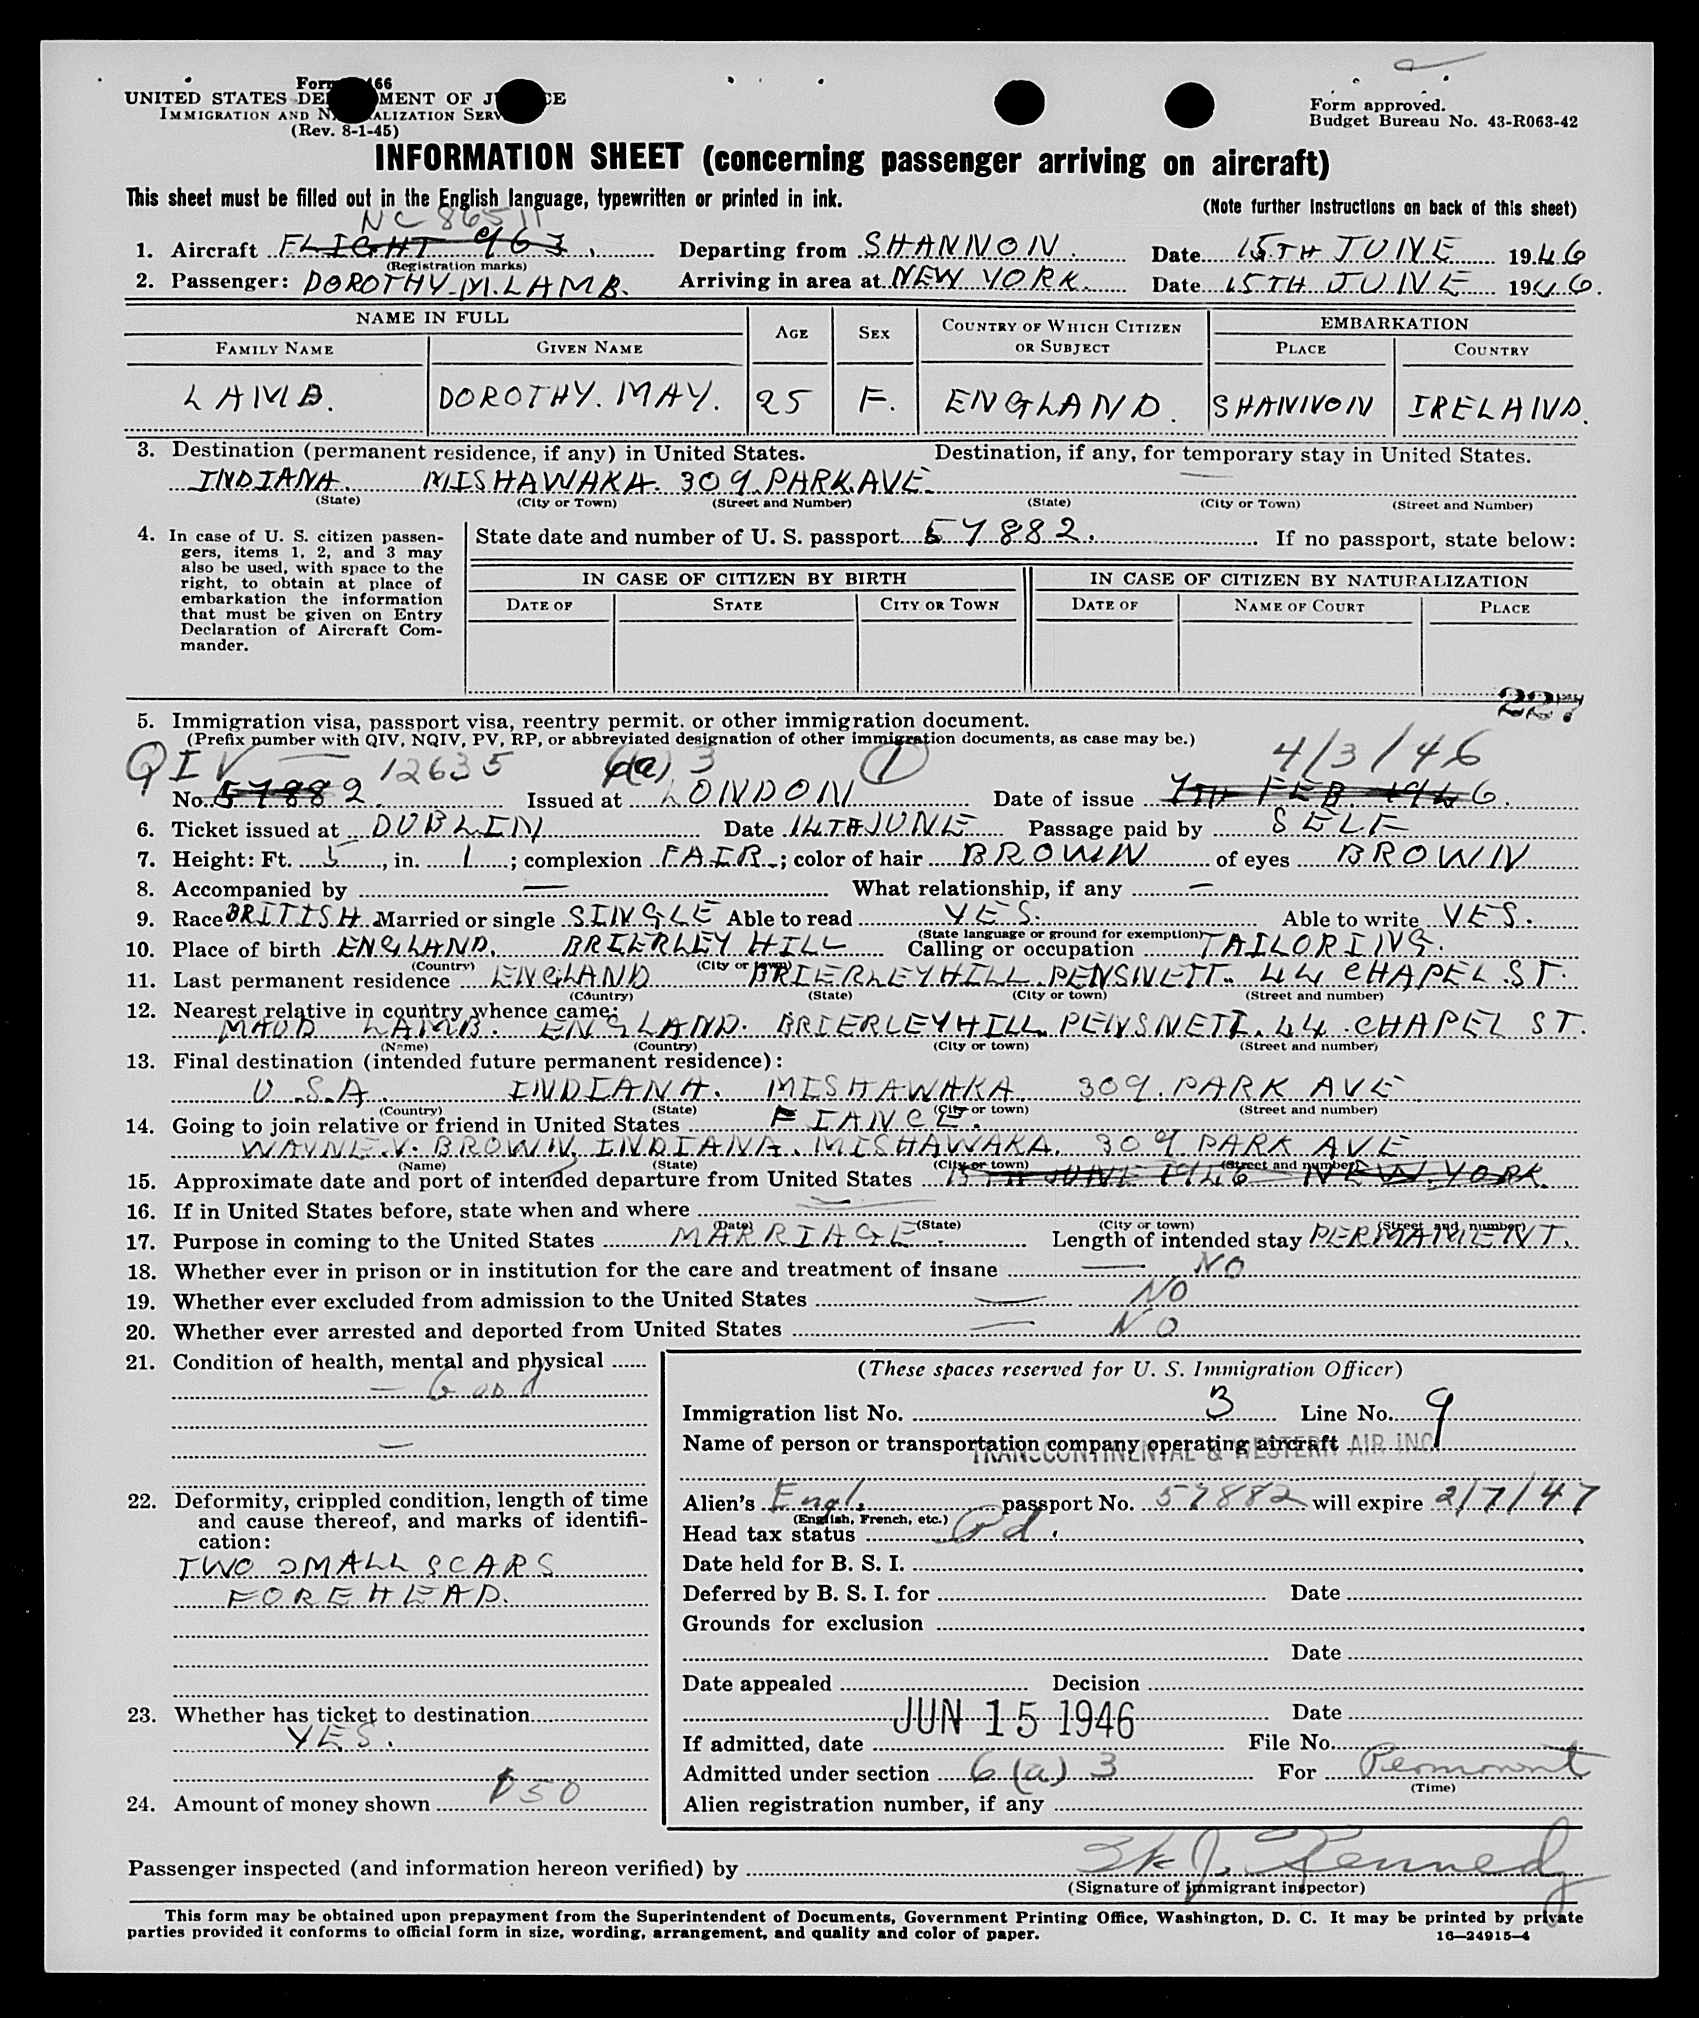 Form 466
UNITED STATES DEPARTMENT OF JUSTICE
IMMIGRATION AND NATURALIZATION SERVICE
(Rev. 8-1-45)
Form approved.
Budget Bureau No. 43-R063-42
INFORMATION SHEET (concerning passenger arriving on aircraft)
This sheet must be filled out in the English language, typewritten or printed in ink.
(Note further instructions on back of this sheet)
NC 86511
1. Aircraft FLIGHT 963. Departing from SHANNON. Date 15TH JUNE 1946
(Registration marks)
2. Passenger: DOROTHY. M. LAMB. Arriving in area at NEW YORK. Date 15TH JUNE 1946.
NAME IN FULL AGE SEX COUNTRY OF WHICH CITIZEN OR SUBJECT EMBARKATION
FAMILY NAME GIVEN NAME PLACE COUNTRY
LAMB. DOROTHY. MAY. 25 F. ENGLAND. SHANNON IRELAND.
3. Destination (permanent residence, if any) in United States. Destination, if any, for temporary stay in United States.
INDIANA. MISHAWAKA. 309. PARK. AVE. —
(State) (City or Town) (Street and Number) (State) (City or Town) (Street and Number)
4. In case of U. S. citizen passengers, items 1, 2, and 3 may also be used, with space to the right, to obtain at place of embarkation the information that must be given on Entry Declaration of Aircraft Commander.
State date and number of U. S. passport 57882. If no passport, state below:
IN CASE OF CITIZEN BY BIRTH IN CASE OF CITIZEN BY NATURALIZATION
DATE OF STATE CITY OR TOWN DATE OF NAME OF COURT PLACE
227
5. Immigration visa, passport visa, reentry permit, or other immigration document.
(Prefix number with QIV, NQIV, PV, RP, or abbreviated designation of other immigration documents, as case may be.)
QIV — 12635 6(a) 3 1 4/3/46
No. 57882. Issued at LONDON Date of issue 7TH FEB. 1946.
6. Ticket issued at DUBLIN Date 14TH JUNE Passage paid by SELF
7. Height: Ft. 5, in. 1; complexion FAIR.; color of hair BROWN of eyes BROWN
8. Accompanied by — What relationship, if any —
9. Race BRITISH. Married or single SINGLE Able to read YES. Able to write YES.
(State language or ground for exemption)
10. Place of birth ENGLAND. BRIERLEY HILL Calling or occupation TAILORING.
(Country) (City or town)
11. Last permanent residence ENGLAND BRIERLEY HILL. PENSNETT. 44 CHAPEL ST.
(Country) (State) (City or town) (Street and number)
12. Nearest relative in country whence came:
MAUD LAMB. ENGLAND. BRIERLEY HILL. PENSNETT. 44 CHAPEL ST.
(Name) (Country) (City or town) (Street and number)
13. Final destination (intended future permanent residence):
U.S.A. INDIANA. MISHAWAKA 309. PARK AVE
(Country) (State) (City or town) (Street and number)
14. Going to join relative or friend in United States FIANCE.
WAYNE. V. BROWN. INDIANA. MISHAWAKA. 309 PARK AVE
(Name) (State) (City or town) (Street and number)
15. Approximate date and port of intended departure from United States 15TH JUNE 1946 NEW YORK.
16. If in United States before, state when and where —
(Date) (State) (City or town) (Street and number)
17. Purpose in coming to the United States MARRIAGE. Length of intended stay PERMANENT.
18. Whether ever in prison or in institution for the care and treatment of insane — NO
19. Whether ever excluded from admission to the United States — NO
20. Whether ever arrested and deported from United States — NO
21. Condition of health, mental and physical
— Good
—
22. Deformity, crippled condition, length of time and cause thereof, and marks of identification:
TWO SMALL SCARS
FOREHEAD.
23. Whether has ticket to destination
YES.
24. Amount of money shown $50
(These spaces reserved for U. S. Immigration Officer)
Immigration list No. 3 Line No. 9
Name of person or transportation company operating aircraft
TRANSCONTINENTAL & WESTERN AIR INC.
Alien's Engl. passport No. 57882 will expire 2/7/47
(English, French, etc.)
Head tax status Pd.
Date held for B. S. I.
Deferred by B. S. I. for Date
Grounds for exclusion
Date
Date appealed Decision
Date
If admitted, date JUN 15 1946 File No.
Admitted under section 6(a) 3 For Permanent
(Time)
Alien registration number, if any
Passenger inspected (and information hereon verified) by J. Kennedy
(Signature of immigrant inspector)
This form may be obtained upon prepayment from the Superintendent of Documents, Government Printing Office, Washington, D. C. It may be printed by private
parties provided it conforms to official form in size, wording, arrangement, and quality and color of paper.
16—24915-4